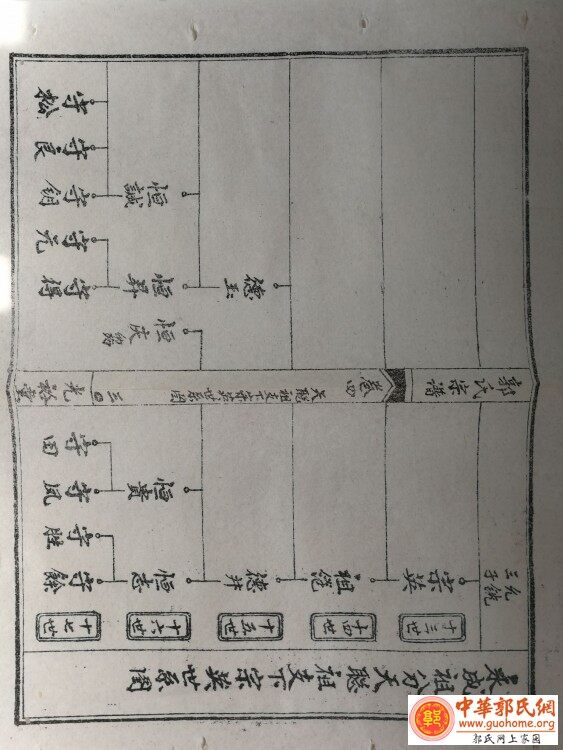 成祖分天聪祖支下宗英世系図
十三世
十四世
十五世
十六世
十七世
三子
宗英
德井
恒志
守餘
守胜
恒贵
守凤
守田
郭氏宗譜
卷四
天聪祖支下宗英世系図
光裕堂
恒庆殇
德玉
恒昇
守得
守元
恒誠
守钥
守良
守松
中華郭氏網
www.guohome.org
郭氏网上家园